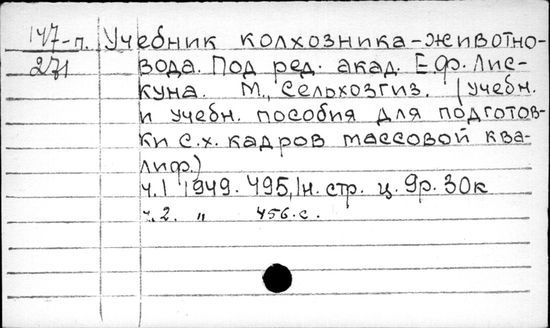 147-п. Учебник колхозника-животно-
271 вода. Под ред. акад. Е.Ф. Лис-
куна. М., Сельхозгиз. (Учебн.
и учебн. пособия для подготов-
ки с.х. кадров массовой ква-
лиф.)
ч.1 1949. 495, 1н. стр. ц. 9р. 30к
ч.2. " 456.с.